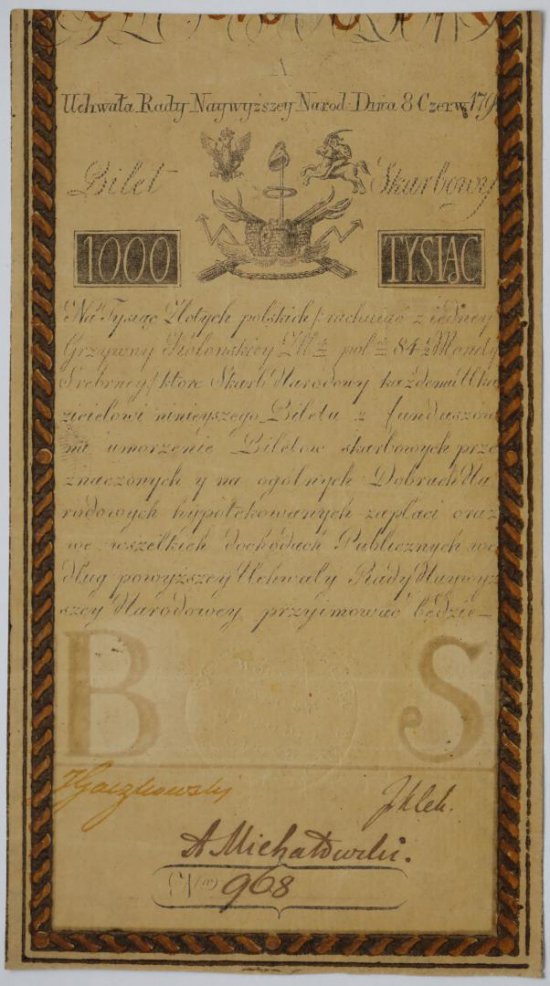 A
Uchwała Rady Naywyższey Narod: Dnia 8 Czerw: 179
Bilet Skarbowy
1000 TYSIĄC
Na Tysiąc Złotych polskich /: rachuiąc z iedney
Grzywny Kolońskiey pol 84½ Monety
Srebrney / które Skarb Narodowy każdemu Uka
zicielowi ninieyszego Biletu z funduszów
na umorzenie Biletow skarbowych prze
znaczonych y na ogólnych Dobrach Na
rodowych hypotekowanych zapłaci oraz
we wszelkich dochodach Publicznych we
dług powyższey Uchwały Rady Naywyż
szey Narodowey przyimować będzie
B S
A Michałowski.
968